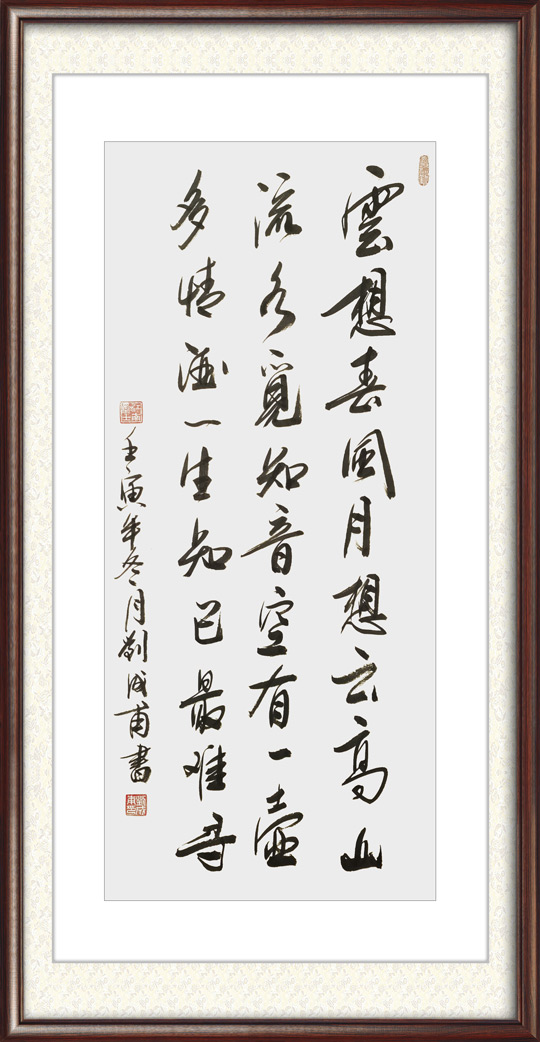 雲想春風月想云高山
流水覓知音空有一壺
多情酒一生知己最难寻
壬寅年冬月劉成甫書